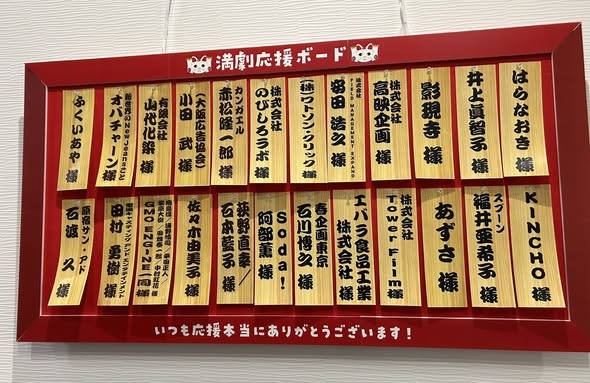 満劇応援ボード
はらなおき 様
井上眞智子 様
影現寺 様
株式会社
高映企画 様
株式会社
FIELD MANAGEMENT EXPAND
窪田 浩久 様
(株)ワトソン・クリック 様
株式会社
のびしろラボ 様
カンガエル
赤松隆一郎 様
(大阪広告協会)
小田 武 様
有限会社
山代化染 様
オバチャーン 様
ふくいあや 様
KINCHO 様
スプーン
福井亜希子 様
あずさ 様
株式会社
Tower Film 様
エバラ食品工業
株式会社 様
春企画東京
石川博久 様
Soda!
阿部薫 様
荻野直幸/
石本藍子 様
佐々木由美子 様
GMO ENGINE一同 様
田村 勇樹 様
原宿サン・アド
石渡 久 様
いつも応援本当にありがとうございます!